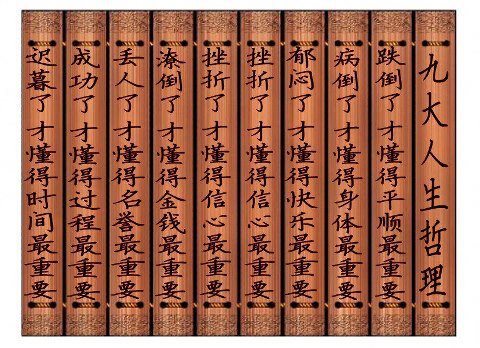 九大人生哲理
跌倒了才懂得平顺最重要
病倒了才懂得身体最重要
郁闷了才懂得快乐最重要
挫折了才懂得信心最重要
挫折了才懂得信心最重要
潦倒了才懂得金钱最重要
丢人了才懂得名誉最重要
成功了才懂得过程最重要
迟暮了才懂得时间最重要